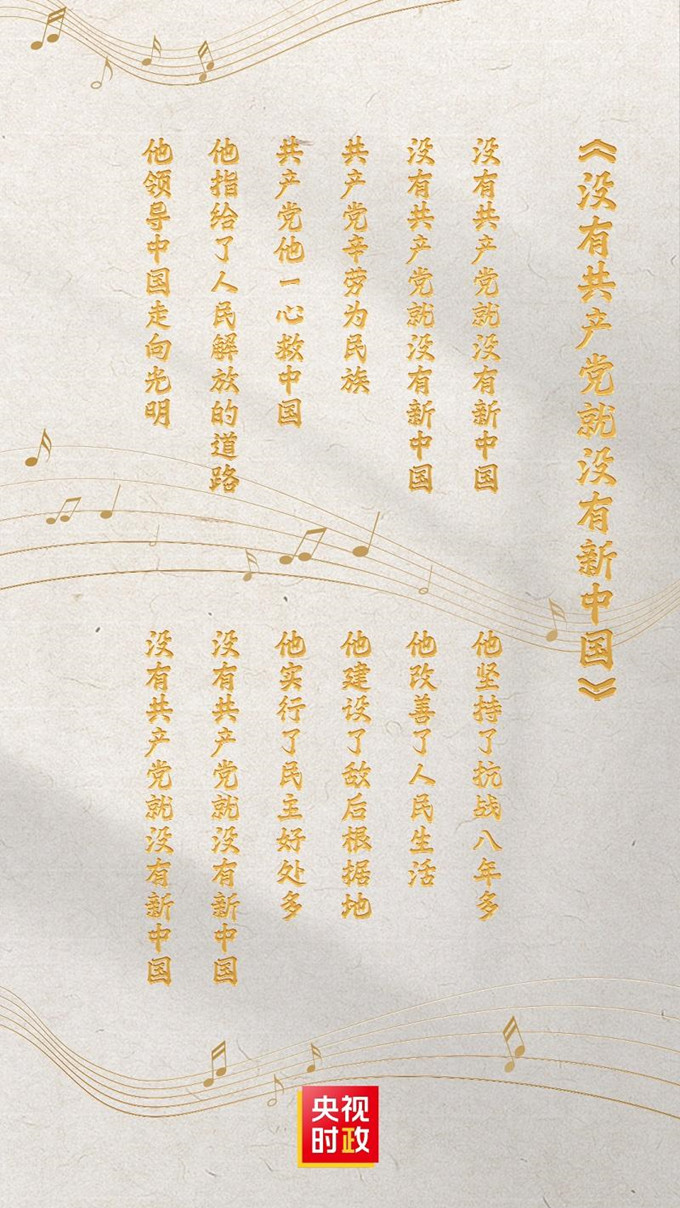 《没有共产党就没有新中国》
没有共产党就没有新中国
没有共产党就没有新中国
共产党辛劳为民族
共产党他一心救中国
他指给了人民解放的道路
他领导中国走向光明
他坚持了抗战八年多
他改善了人民生活
他建设了敌后根据地
他实行了民主好处多
没有共产党就没有新中国
没有共产党就没有新中国
央视
时政